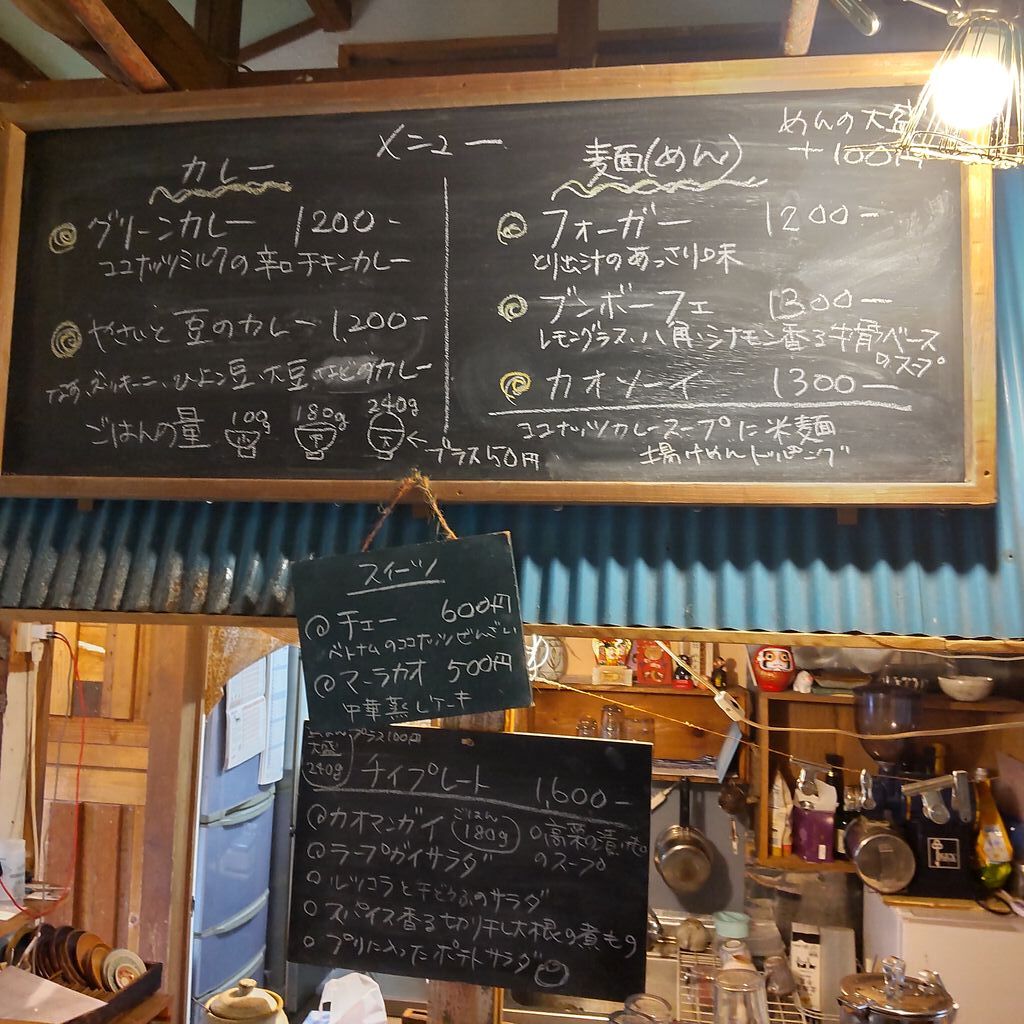 メニュー
カレー
グリーンカレー 1200-
ココナッツミルクの辛口チキンカレー
やさいと豆のカレー 1,200-
なす、ズッキーニ、ひよこ豆、大豆、などのカレー
ごはんの量 100g 180g 240g
小 中 大 ← プラス50円
めんの大盛
+100円
麺(めん)
フォーガー 1200-
とり出汁のあっさり味
ブンボーフェ 1300-
レモングラス、八角、シナモン香る牛骨ベース
のスープ
カオソーイ 1300-
ココナッツカレースープに米麺
揚げめんトッピング
スイーツ
@チェー 600円
ベトナムのココナッツぜんざい
@マーラカオ 500円
中華蒸しケーキ
大盛 プラス100円
240g
チイプレート 1,600-
@カオマンガイ ごはん 180g
@ラープガイサラダ
のスープ
○ルッコラと干どうふのサラダ
○スパイス香る切り干し大根の煮もの
○プリに入ったポテトサラダ